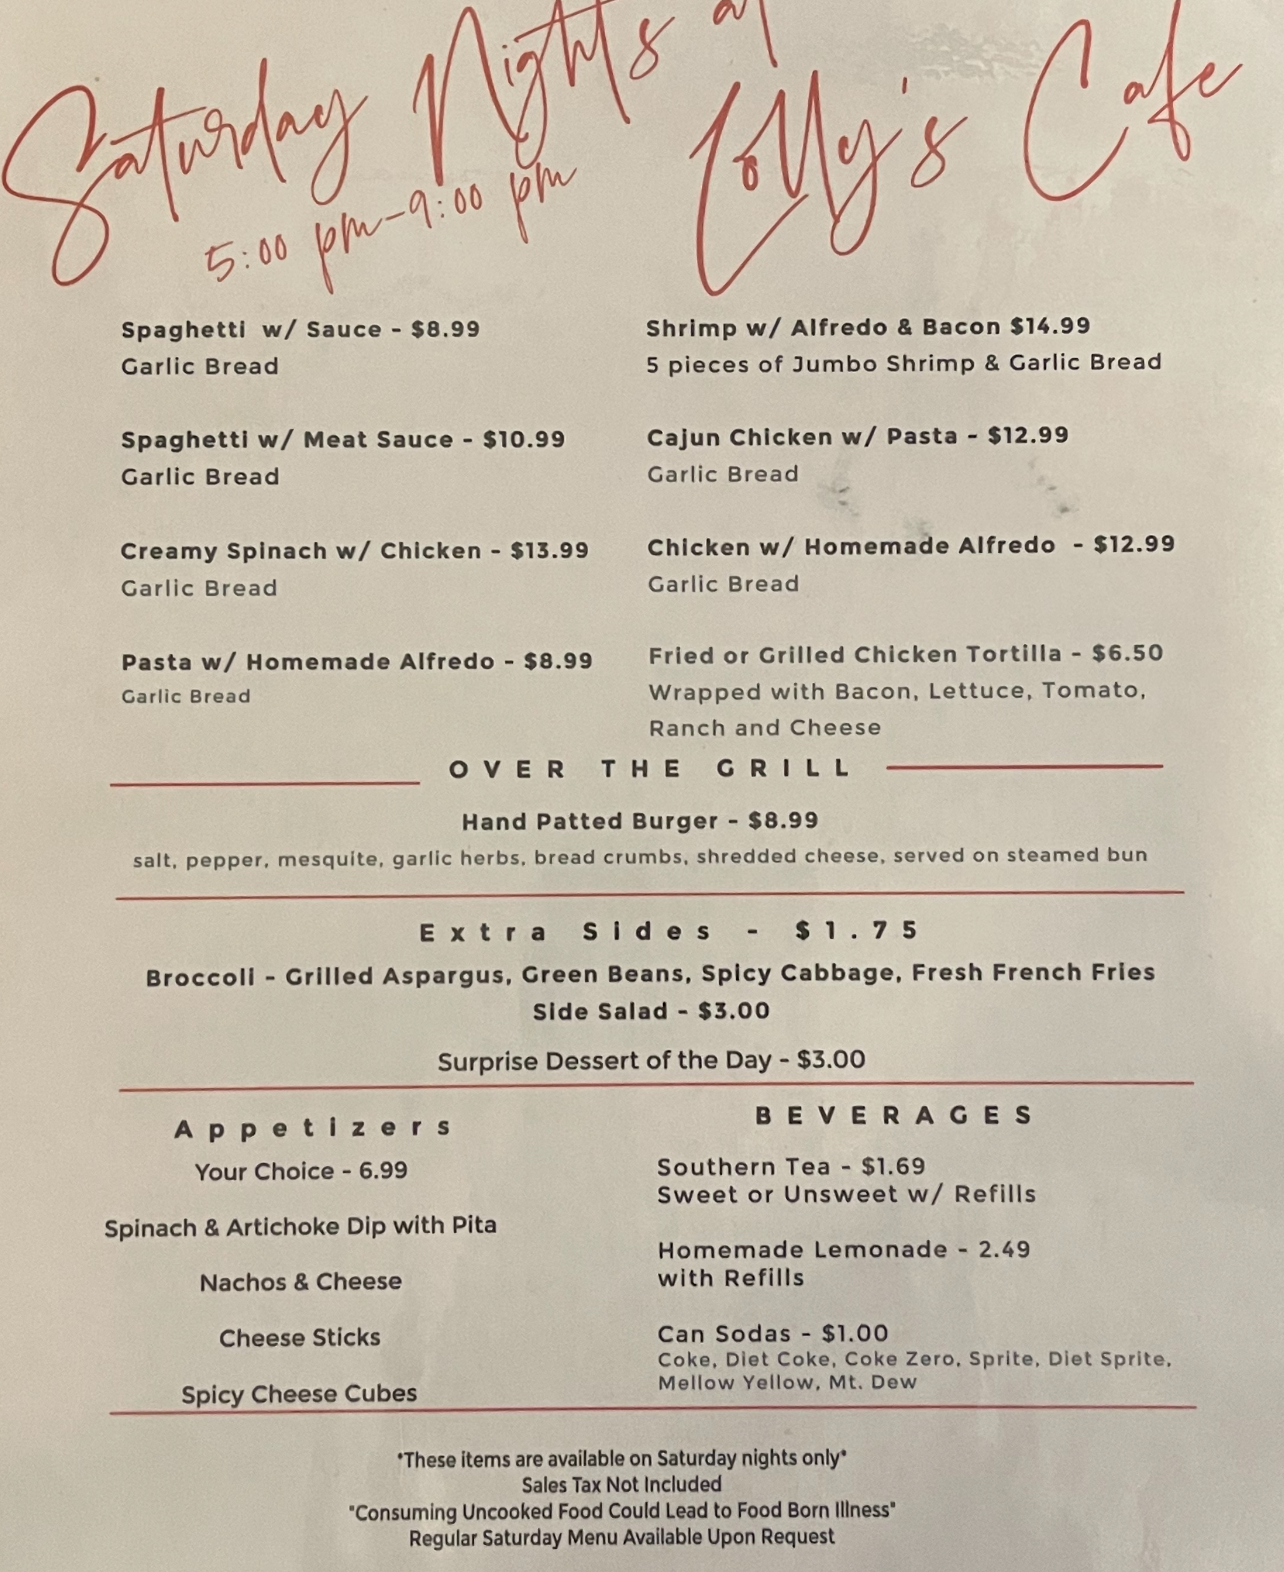 Saturday Nights at
Lolly's Cafe
5:00 pm-9:00 pm
Spaghetti w/ Sauce - $8.99
Garlic Bread
Spaghetti w/ Meat Sauce - $10.99
Garlic Bread
Creamy Spinach w/ Chicken - $13.99
Garlic Bread
Pasta w/ Homemade Alfredo - $8.99
Garlic Bread
Shrimp w/ Alfredo & Bacon $14.99
5 pieces of Jumbo Shrimp & Garlic Bread
Cajun Chicken w/ Pasta - $12.99
Garlic Bread
Chicken w/ Homemade Alfredo - $12.99
Garlic Bread
Fried or Grilled Chicken Tortilla - $6.50
Wrapped with Bacon, Lettuce, Tomato,
Ranch and Cheese
OVER THE GRILL
Hand Patted Burger - $8.99
salt, pepper, mesquite, garlic herbs, bread crumbs, shredded cheese, served on steamed bun
Extra Sides - $1.75
Broccoli - Grilled Aspargus, Green Beans, Spicy Cabbage, Fresh French Fries
Side Salad - $3.00
Surprise Dessert of the Day - $3.00
Appetizers
Your Choice - 6.99
Spinach & Artichoke Dip with Pita
Nachos & Cheese
Cheese Sticks
Spicy Cheese Cubes
BEVERAGES
Southern Tea - $1.69
Sweet or Unsweet w/ Refills
Homemade Lemonade - 2.49
with Refills
Can Sodas - $1.00
Coke, Diet Coke, Coke Zero, Sprite, Diet Sprite,
Mellow Yellow, Mt. Dew
*These items are available on Saturday nights only*
Sales Tax Not Included
"Consuming Uncooked Food Could Lead to Food Born Illness"
Regular Saturday Menu Available Upon Request